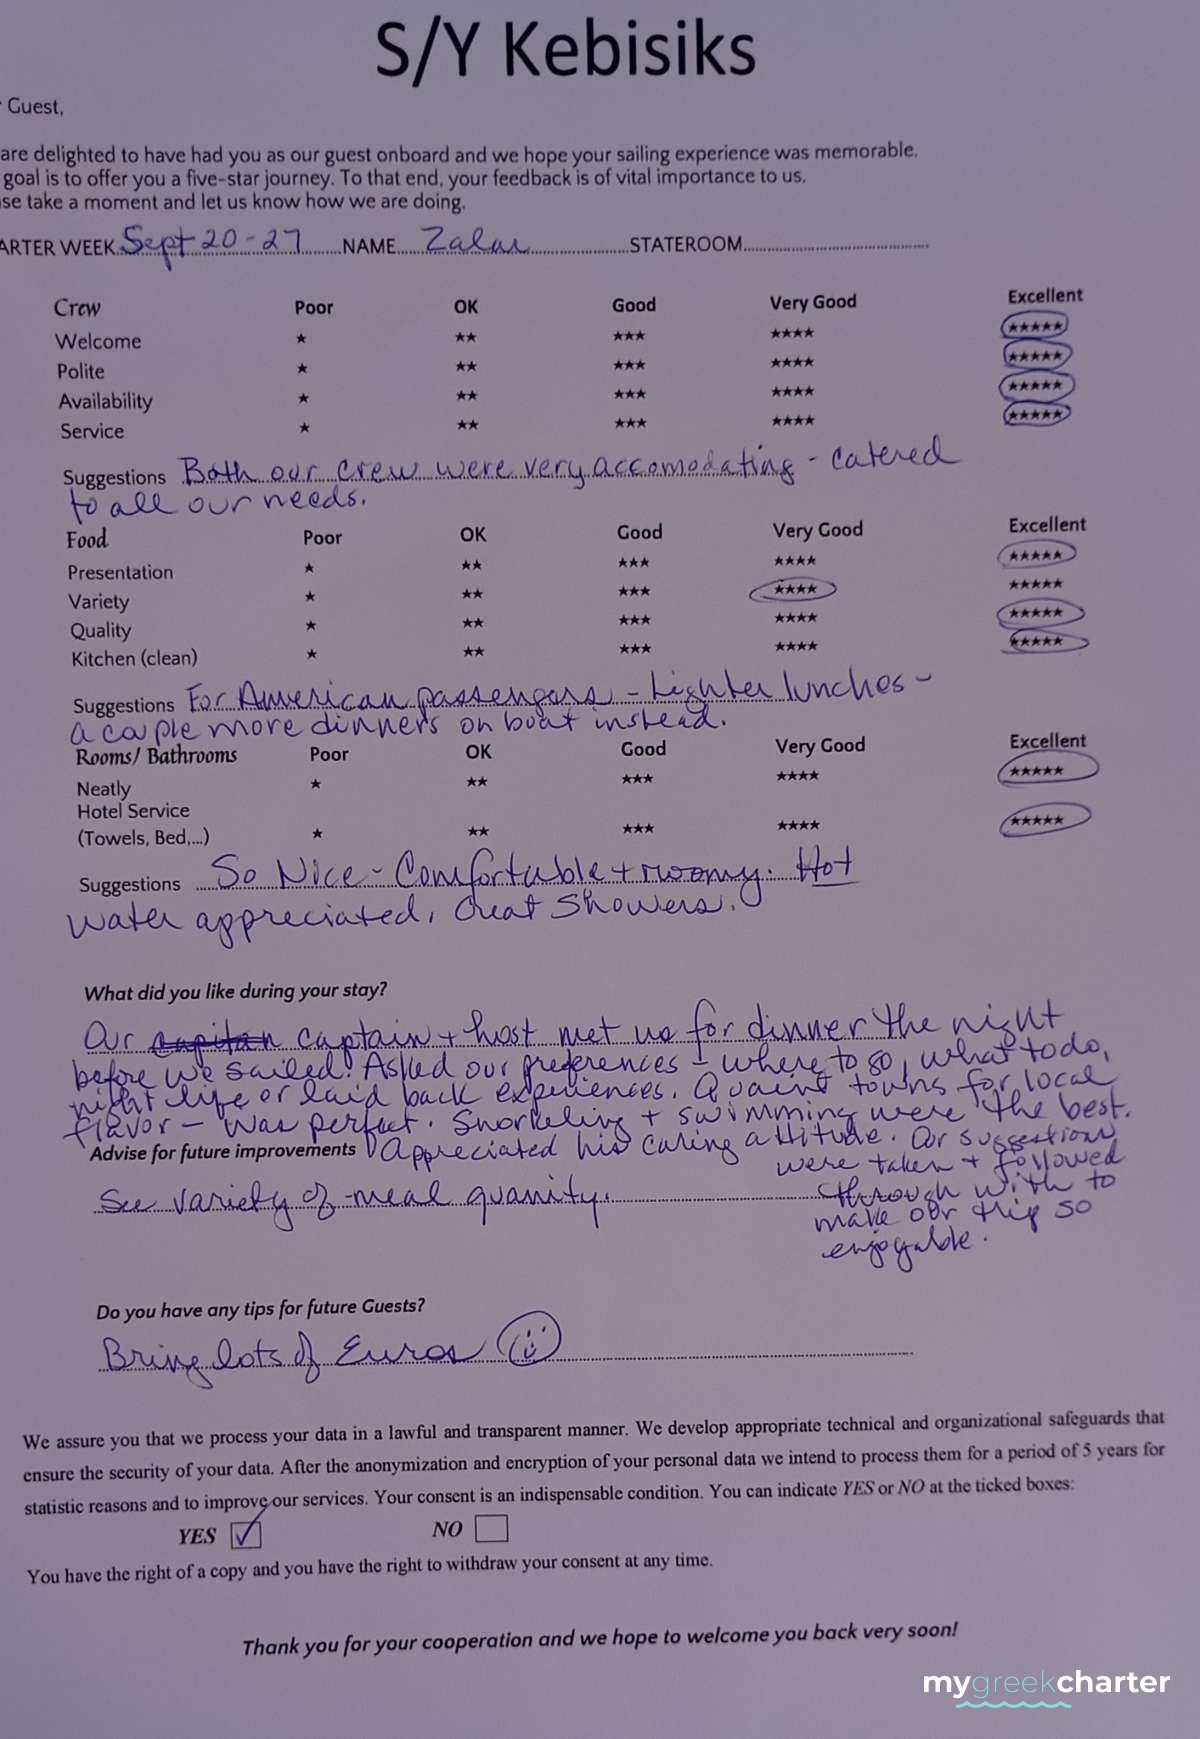 S/Y Kebisiks
Guest,
are delighted to have had you as our guest onboard and we hope your sailing experience was memorable.
goal is to offer you a five-star journey. To that end, your feedback is of vital importance to us.
se take a moment and let us know how we are doing.
ARTER WEEK Sept 20-27 NAME Zalar STATEROOM
Crew Poor OK Good Very Good Excellent
Welcome ★ ★★ ★★★ ★★★★ ★★★★★
Polite ★ ★★ ★★★ ★★★★ ★★★★★
Availability ★ ★★ ★★★ ★★★★ ★★★★★
Service ★ ★★ ★★★ ★★★★ ★★★★★
Suggestions Both our crew were very accomodating - catered
to all our needs.
Food Poor OK Good Very Good Excellent
Presentation ★ ★★ ★★★ ★★★★ ★★★★★
Variety ★ ★★ ★★★ ★★★★ ★★★★★
Quality ★ ★★ ★★★ ★★★★ ★★★★★
Kitchen (clean) ★ ★★ ★★★ ★★★★ ★★★★★
Suggestions For American passengers - Lighter lunches -
a couple more dinners on boat instead.
Rooms/ Bathrooms Poor OK Good Very Good Excellent
Neatly ★ ★★ ★★★ ★★★★ ★★★★★
Hotel Service
(Towels, Bed,...) ★ ★★ ★★★ ★★★★ ★★★★★
Suggestions So Nice - Comfortable + roomy. Hot
water appreciated, Great Showers.
What did you like during your stay?
Our capitan captain + host met us for dinner the night
before we sailed! Asked our preferences - where to go, what to do,
night life or laid back experiences. Quaint towns for local
flavor - was perfect. Snorkeling + swimming were the best.
Appreciated his caring attitude. Our suggestions
were taken + followed
through with to
make our trip so
enjoyable.
Advise for future improvements
See variety of meal quanity.
Do you have any tips for future Guests?
Bring lots of Euros
We assure you that we process your data in a lawful and transparent manner. We develop appropriate technical and organizational safeguards that
ensure the security of your data. After the anonymization and encryption of your personal data we intend to process them for a period of 5 years for
statistic reasons and to improve our services. Your consent is an indispensable condition. You can indicate YES or NO at the ticked boxes:
YES NO
You have the right of a copy and you have the right to withdraw your consent at any time.
Thank you for your cooperation and we hope to welcome you back very soon!
mygreekcharter